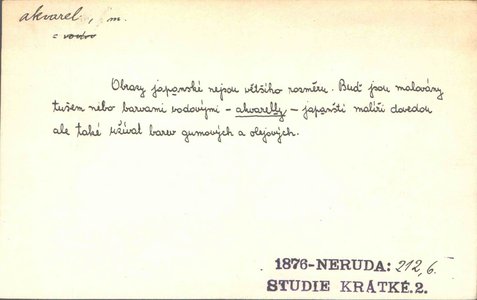 akvarel, m.
Obrazy japanské nejsou většího rozměru. Buď jsou malovány
tušem nebo barvami vodovými – akvarelly – japanští malíři dovedou
ale také užívat barev gumových a olejových.
1876-NERUDA: 212,6.
STUDIE KRÁTKÉ.2.